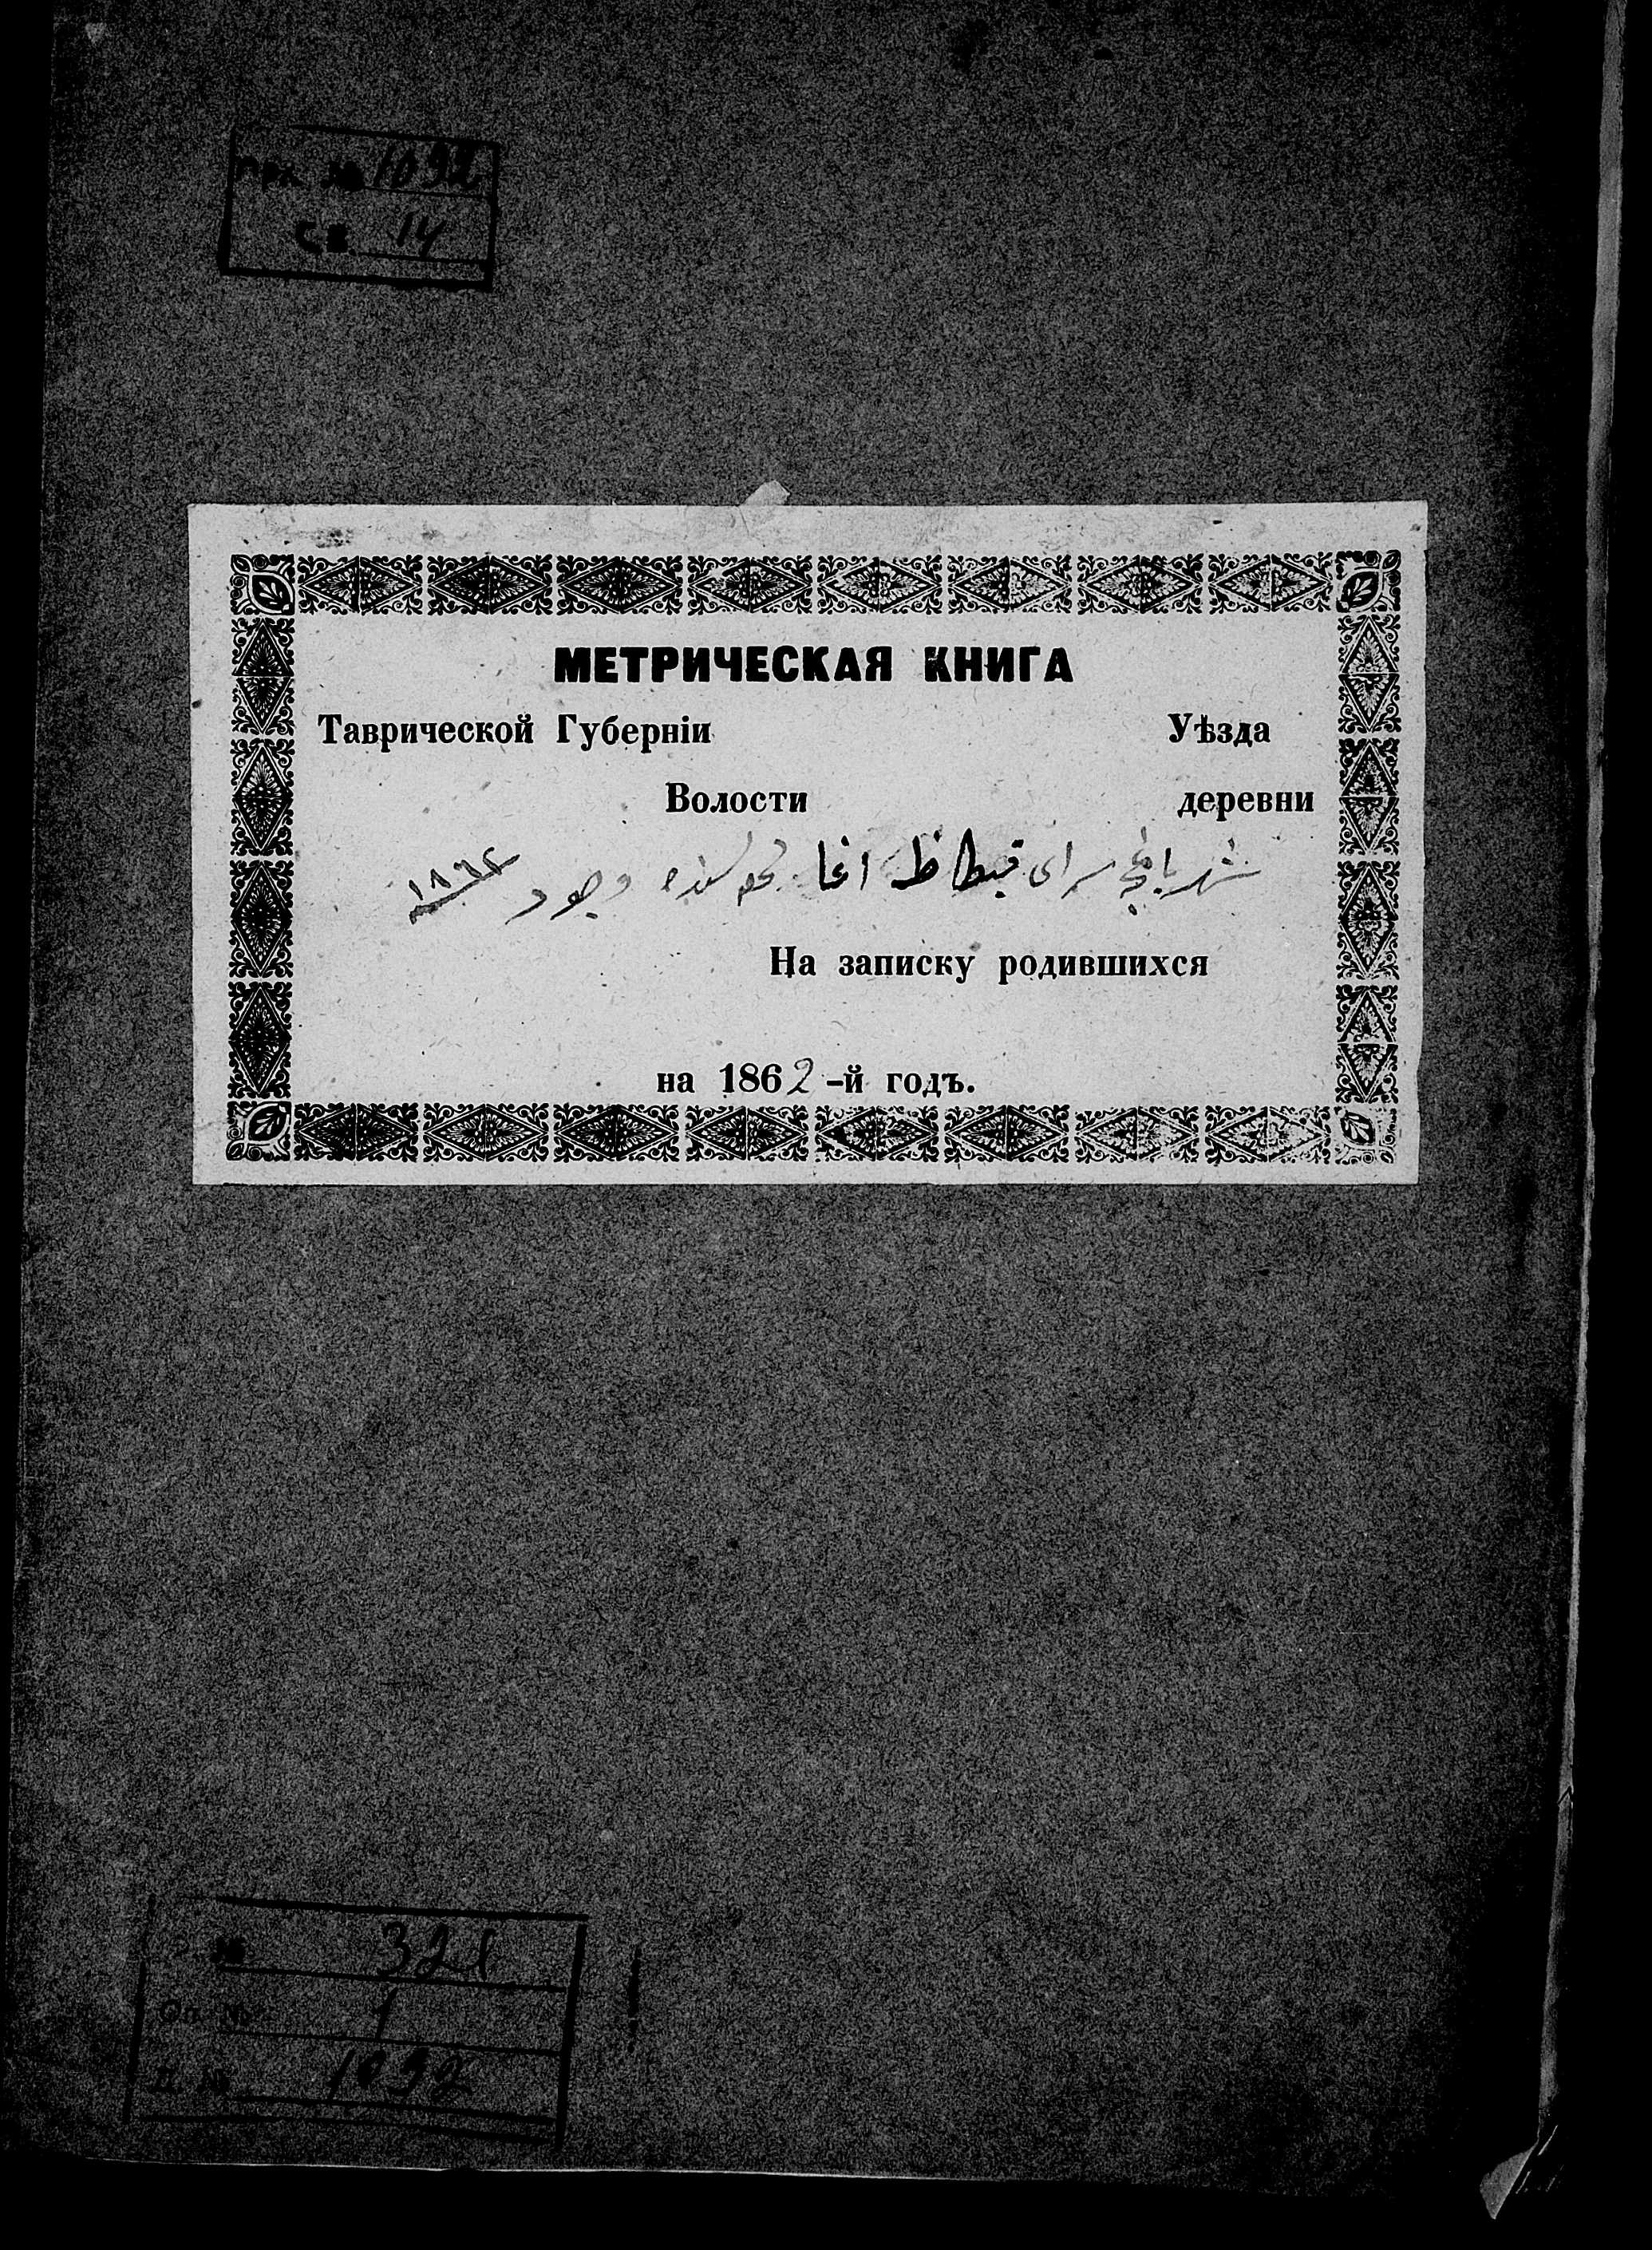 прх № 1092
св. 14
МЕТРИЧЕСКАЯ КНИГА
Таврической Губерніи Уѣзда
Волости деревни
شهر باغچه سراى قبطاظ اغا محله سنده ١٨٦٢
На записку родившихся
на 1862-й годъ.
№ 321
Оп. № 1
Д. № 1092